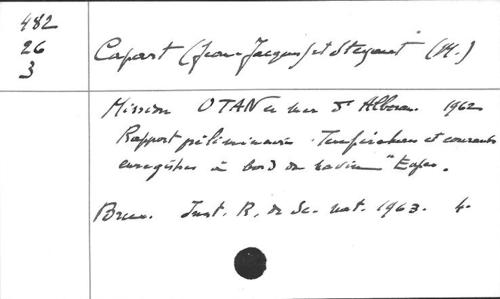 482
26
3
Capart (Jean-Jacques) et Steyaert (M.)
Mission OTAN en mer d'Alboran. 1962
Rapport préliminaire. Températures et courants
enregistrés à bord du navire "Eupen.
Brux. Inst. R. de Sc. nat. 1963. 4.